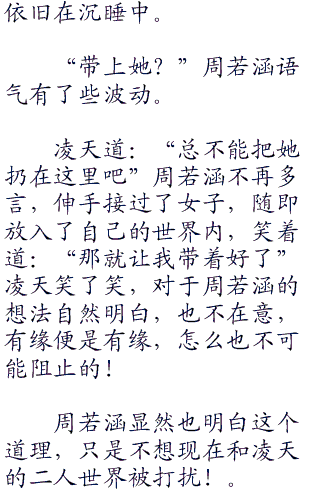 依旧在沉睡中。
“带上她？”周若涵语
气有了些波动。
凌天道：“总不能把她
扔在这里吧”周若涵不再多
言，伸手接过了女子，随即
放入了自己的世界内，笑着
道：“那就让我带着好了”
凌天笑了笑，对于周若涵的
想法自然明白，也不在意，
有缘便是有缘，怎么也不可
能阻止的！
周若涵显然也明白这个
道理，只是不想现在和凌天
的二人世界被打扰！。